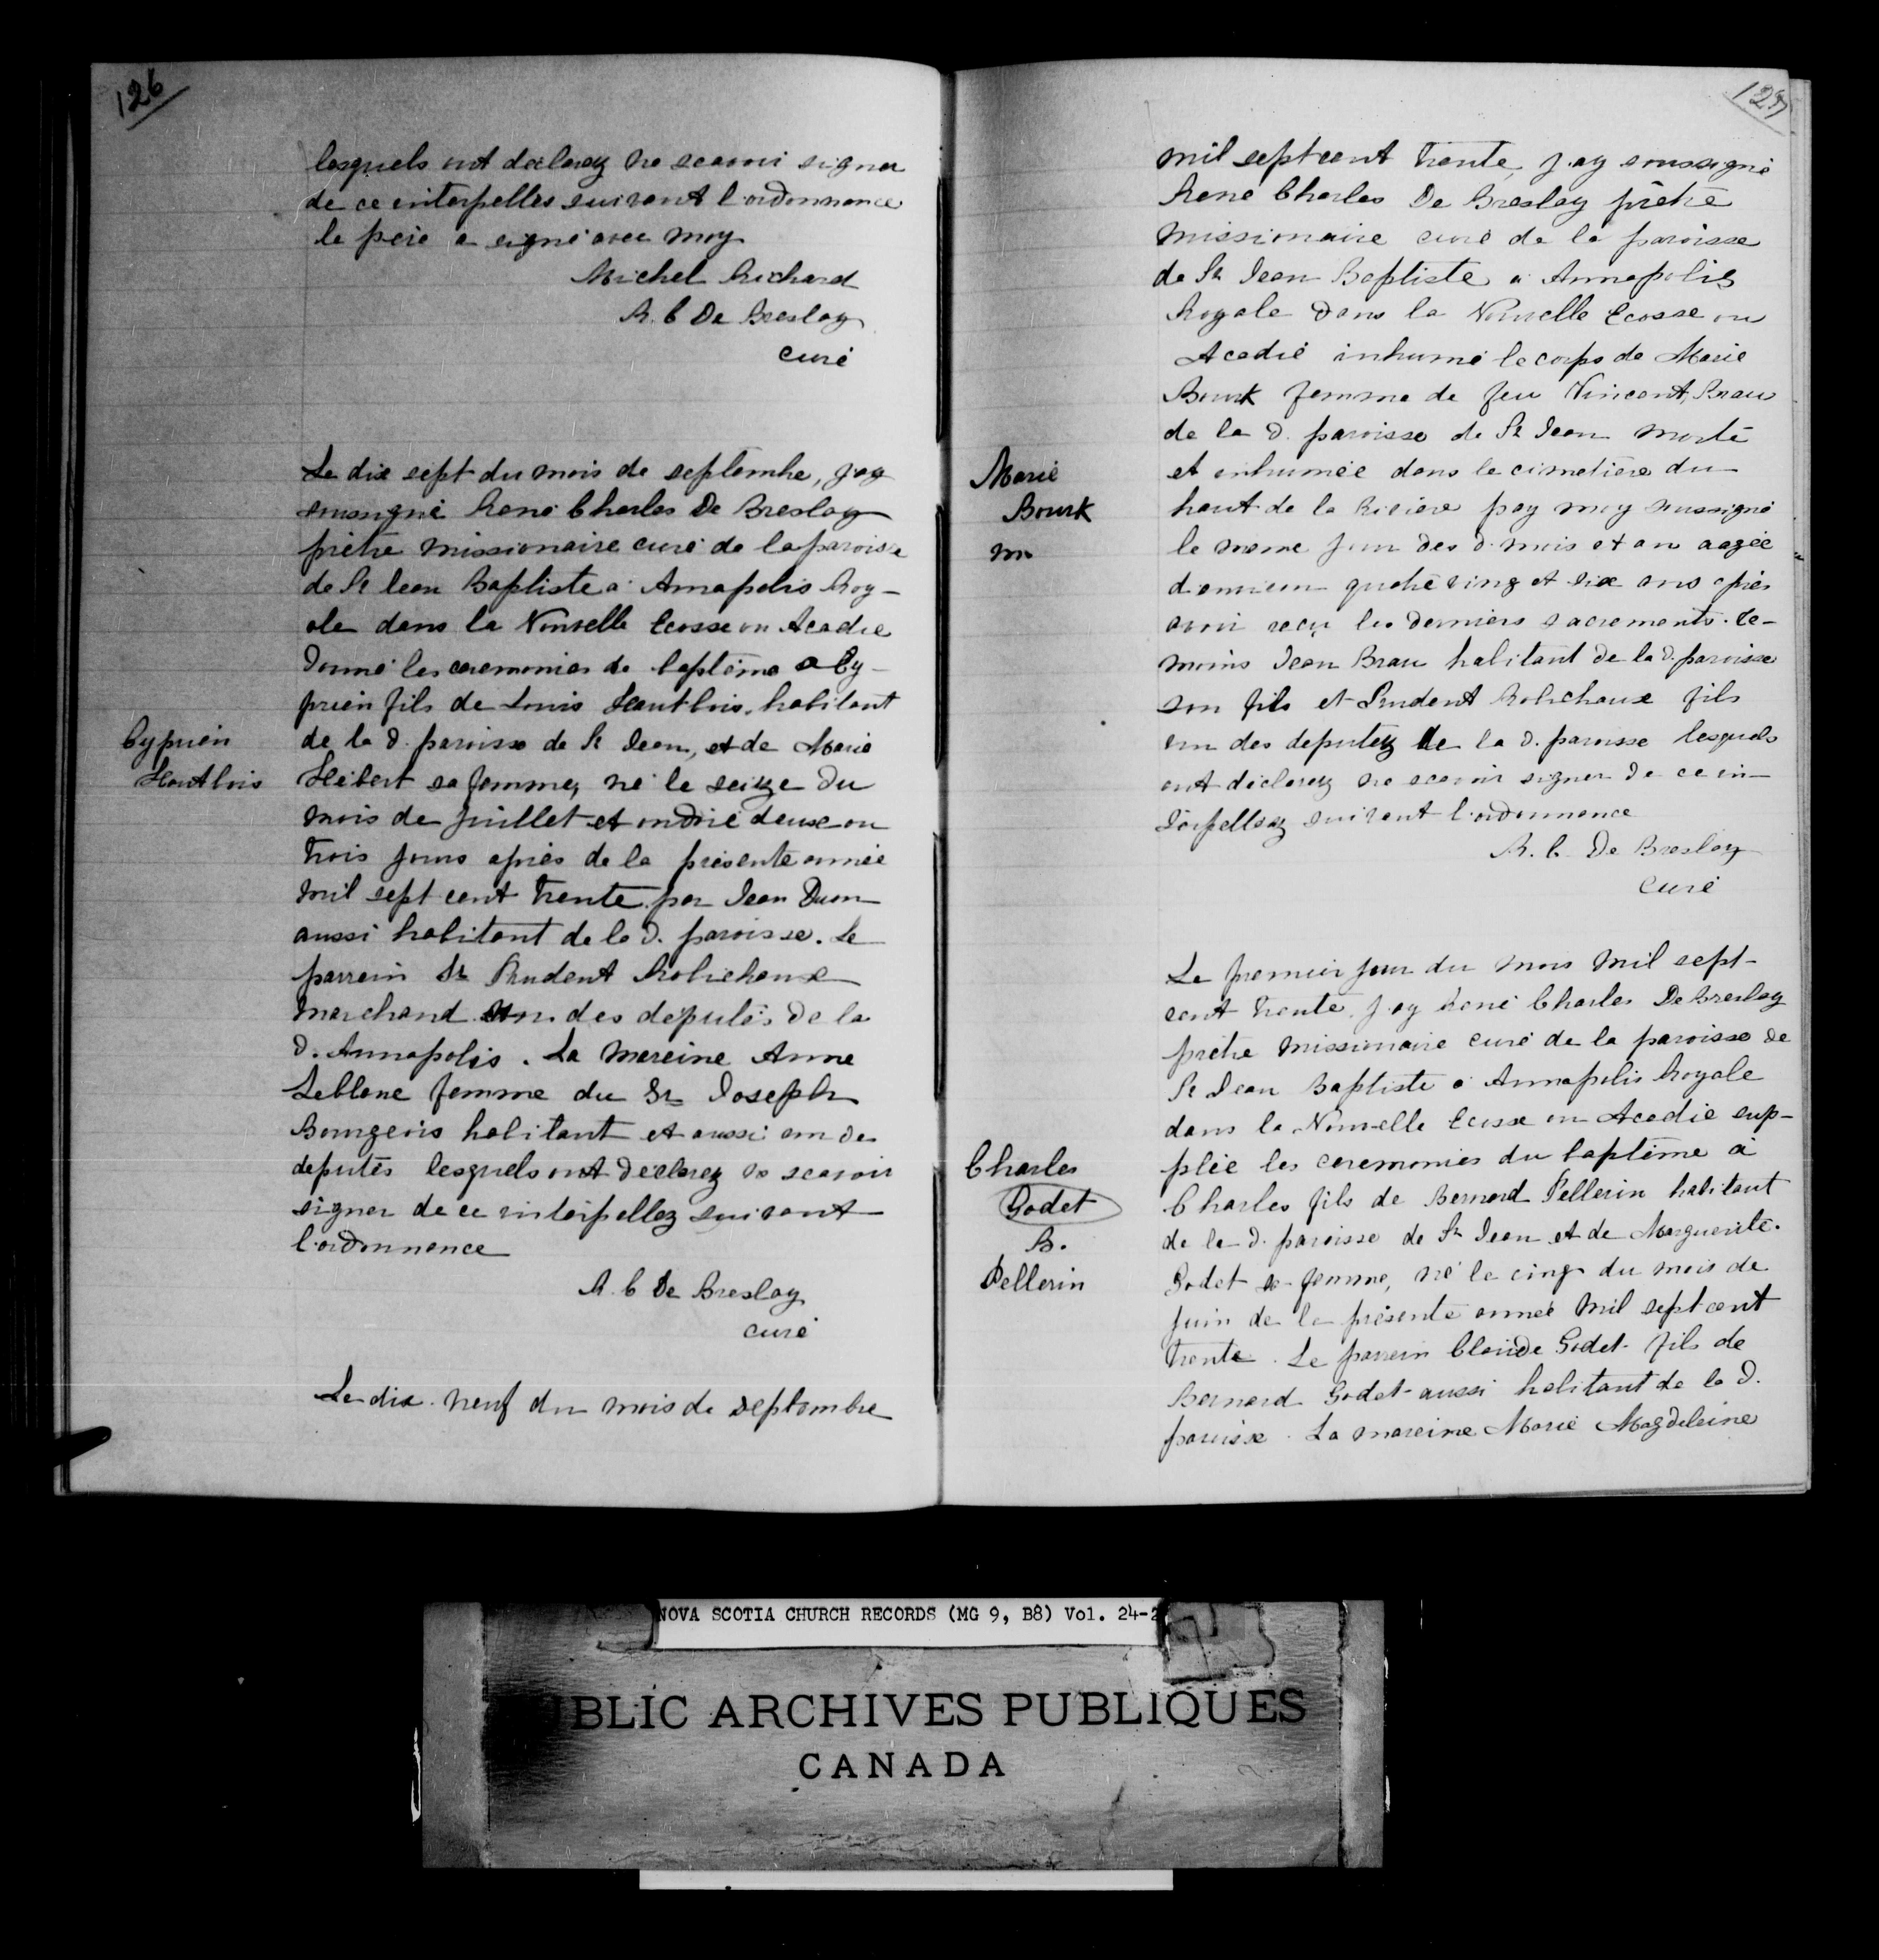 126
lesquels ont declarez ne scavoir signer
de ce interpelles suivant l'ordonnance
le père a signé avec moy
Michel Richard
R. C De Breslay
curé
Le dix sept du mois de septembre, j'ay
soussigné René Charles De Breslay
prêtre missionaire curé de la paroisse
de St Jean Baptiste a Annapolis Roy-
ale dans la Nouvelle Ecosse ou Acadie
donné les ceremonies de baptême a Cy-
prien fils de Louis Hautbois, habitant
Cyprien
Hautbois
de la d. paroisse de St Jean, et de Marie
Hébert sa femme, né le seize du
mois de juillet et ondoié deux ou
trois jours après de la présente année
mil sept cent trente par Jean Duon
aussi habitant de la d. paroisse. Le
parrein Sr Prudent Robichaux
marchand un des deputés de la
d. Annapolis. La mareine Anne
Leblanc femme du Sr Joseph
Bourgeois habitant et aussi un de
deputés lesquels ont declarez ne scavoir
signer de ce interpellez suivant
l'ordonnance
R. C De Breslay
curé
Le dix neuf du mois de septembre
127
mil sept cent trente, j'ay soussigné
René Charles De Breslay prêtre
missionaire curé de la paroisse
de St Jean Baptiste a Annapolis
Royale dans la Nouvelle Ecosse ou
Acadie inhumé le corps de Marie
Bourk femme de feu Vincent Brau
de la d. paroisse de St Jean morte
Marie
Bourk
m
et inhumée dans le cimetière du
haut de la Rivière pay moy soussigné
le meme jour des d. mois et an aagée
d'environ quatre vingt et six ans après
avoir reçu les derniers sacrements. Te-
moins Jean Brau habitant de la d. paroisse
son fils et Prudent Robichaux fils
un des deputez de la d. paroisse lesquels
ont declarez ne scavoir signer de ce in-
terpellez suivant l'ordonnance
R. C. De Breslay
curé
Le premier jour du mois mil sept-
cent trente, j'ay René Charles De Breslay
prêtre missionaire curé de la paroisse de
St Jean Baptiste a Annapolis Royale
dans la Nouvelle Ecosse ou Acadie sup-
plée les ceremonies du baptême à
Charles
Godet
B.
Pellerin
Charles fils de Bernard Pellerin habitant
de la d. paroisse de St Jean et de Marguerite
Godet sa femme, né le cinq du mois de
juin de la présente année mil sept cent
trente. Le parrein Claude Godet fils de
Bernard Godet aussi habitant de la d.
paroisse. La mareine Marie Magdeleine
NOVA SCOTIA CHURCH RECORDS (MG 9, B8) Vol. 24-2
BLIC ARCHIVES PUBLIQUES
CANADA